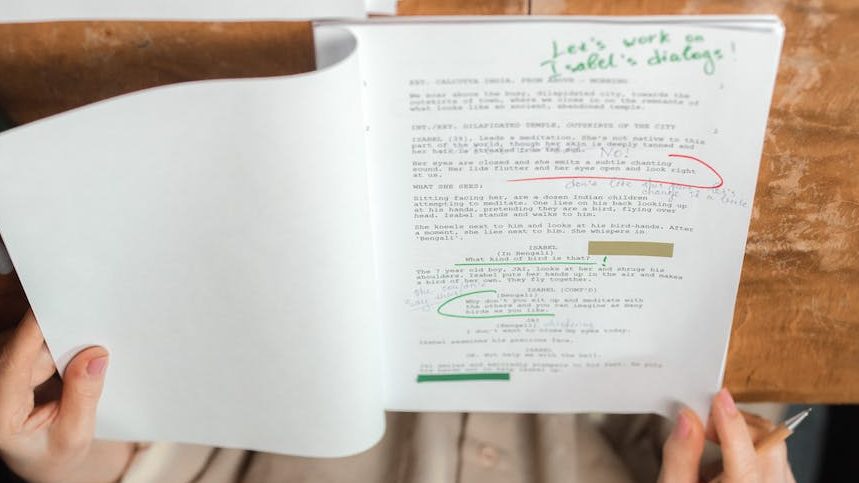 Let's work on
Isabel's dialogs!
EXT. CALCUTTA INDIA. FROM ABOVE - MORNING
1
We soar above the busy, dilapidated city, towards the
outskirts of town, where we close in on the remnants of
what looks like an ancient, abandoned temple.
INT./EXT. DILAPIDATED TEMPLE, OUTSKIRTS OF THE CITY
2
ISABEL (38), leads a meditation. She's not native to this
part of the world, though her skin is deeply tanned and
her hair is streaked from the sun.
No!
Her eyes are closed and she emits a subtle chanting
sound. Her lids flutter and her eyes open and look right
at us.
don't like this part, let's
change it a little
WHAT SHE SEES:
Sitting facing her, are a dozen Indian children
attempting to meditate. One lies on his back looking up
at his hands, pretending they are a bird, flying over
head. Isabel stands and walks to him.
She kneels next to him and looks at his bird-hands. After
a moment, she lies next to him. She whispers in
'Bengali'.
ISABEL
(In Bengali)
What kind of bird is that?
!
The 7 year old boy, JAI, looks at her and shrugs his
shoulders. Isabel puts her hands up in the air and makes
a bird of her own. They fly together.
she couldn't
say
ISABEL (CONT'D)
(Bengali)
Why don't you sit up and meditate with
the others and you can imagine as many
birds as you like.
JAI
(Bengali) whispering
I don't want to close my eyes today.
Isabel examines his precious face.
ISABEL
OK. But help me with the bell.
Jai smiles and excitedly prepares to his feet. He puts
his hands out to help Isabel up.